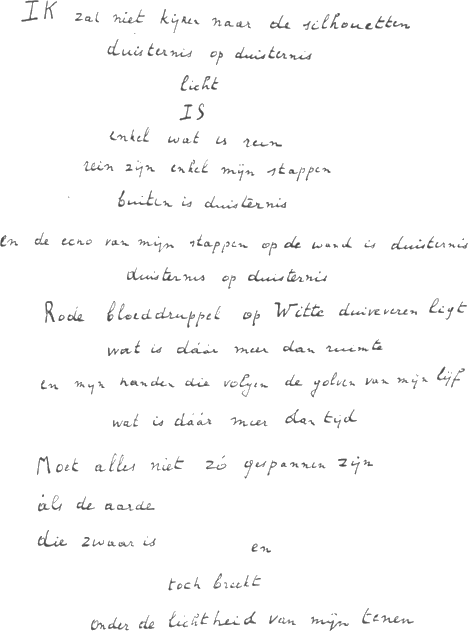 IK zal niet kijken naar de silhouetten
duisternis op duisternis
licht
IS
enkel wat is rein
rein zijn enkel mijn stappen
buiten is duisternis
en de echo van mijn stappen op de wand is duisternis
duisternis op duisternis
Rode bloeddruppel op Witte duiveveren ligt
wat is dáár meer dan ruimte
en mijn handen die volgen de golven van mijn lijf
wat is dáár meer dan tijd
Moet alles niet zó gespannen zijn
àls de aarde
die zwaar is en
toch breekt
onder de lichtheid van mijn tenen